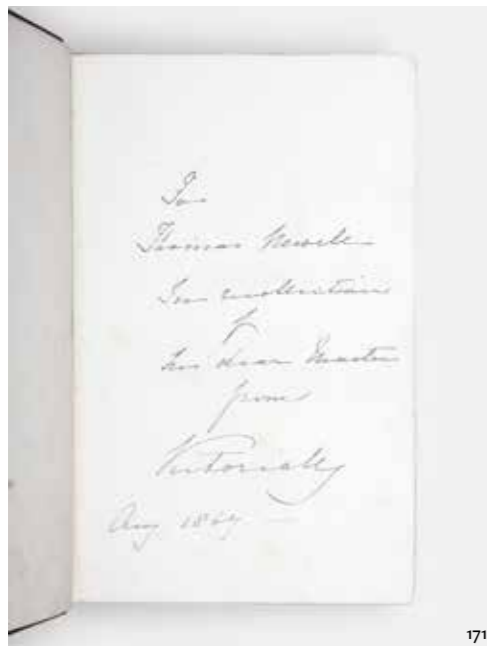 To
Thomas Newell
In recollection
of
his dear Master
from
Victoria R
Aug 1867
171